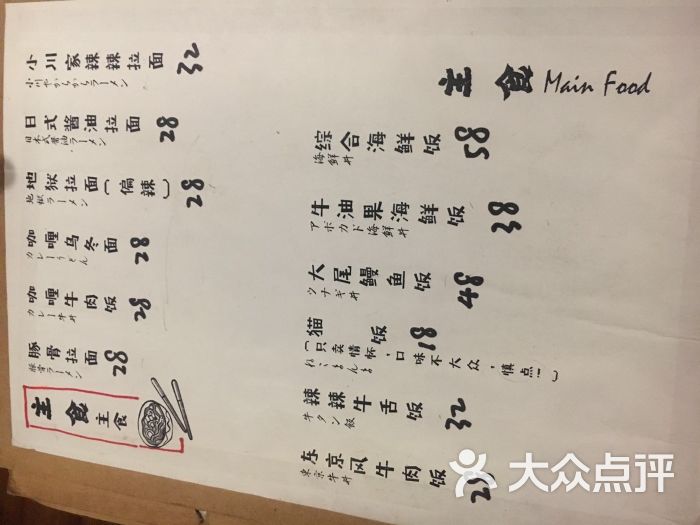 主食 Main Food
综合海鲜饭 58
海鮮丼
牛油果海鲜饭 38
アボカド海鮮丼
大尾鳗鱼饭 48
ウナギ丼
猫饭 18
(只卖情怀，口味不大众，慎点！)
ねこまんま
辣辣牛舌饭 32
牛タン飯
东京风牛肉饭
東京牛丼
小川家辣辣拉面 32
小川やからからラーメン
日式酱油拉面 28
日本式醤油ラーメン
地狱拉面(偏辣) 28
地獄ラーメン
咖喱乌冬面 28
カレーうどん
咖喱牛肉饭 28
カレー牛丼
豚骨拉面 28
豚骨ラーメン
主食
主食
大众点评